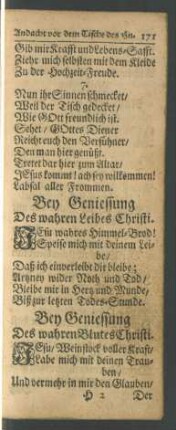 Andacht vor dem Tische des Hn. 171
Gib mir Krafft und Lebens-Safft.
Ziehe mich selbsten mit dem Kleide
Zu der Hochzeit-Freude.
7.
Nun ihr Sinnen schmecket/
Weil der Tisch gedecket/
Wie GOtt freundlich ist.
Sehet/ GOttes Diener
Reicht euch den Versühner/
Den man hier genüßt.
Tretet dar hier zum Altar/
JEsus kommt! ach sey willkommen!
Labsal aller Frommen.
Bey Geniessung
Des wahren Leibes Christi.
JEsu wahres Himmel-Brod!
Speise mich mit deinem Lei-
be/
Daß ich einverleibt dir bleibe;
Artzney wider Noth und Tod/
Bleibe mir in Hertz und Munde/
Biß zur letzten Todes-Stunde.
Bey Geniessung
Des wahren Blutes Christi.
JEsu/ Weinstock voller Kraft/
Labe mich mit deinen Trau-
ben/
Und vermehr in mir den Glauben/
H 2 Der